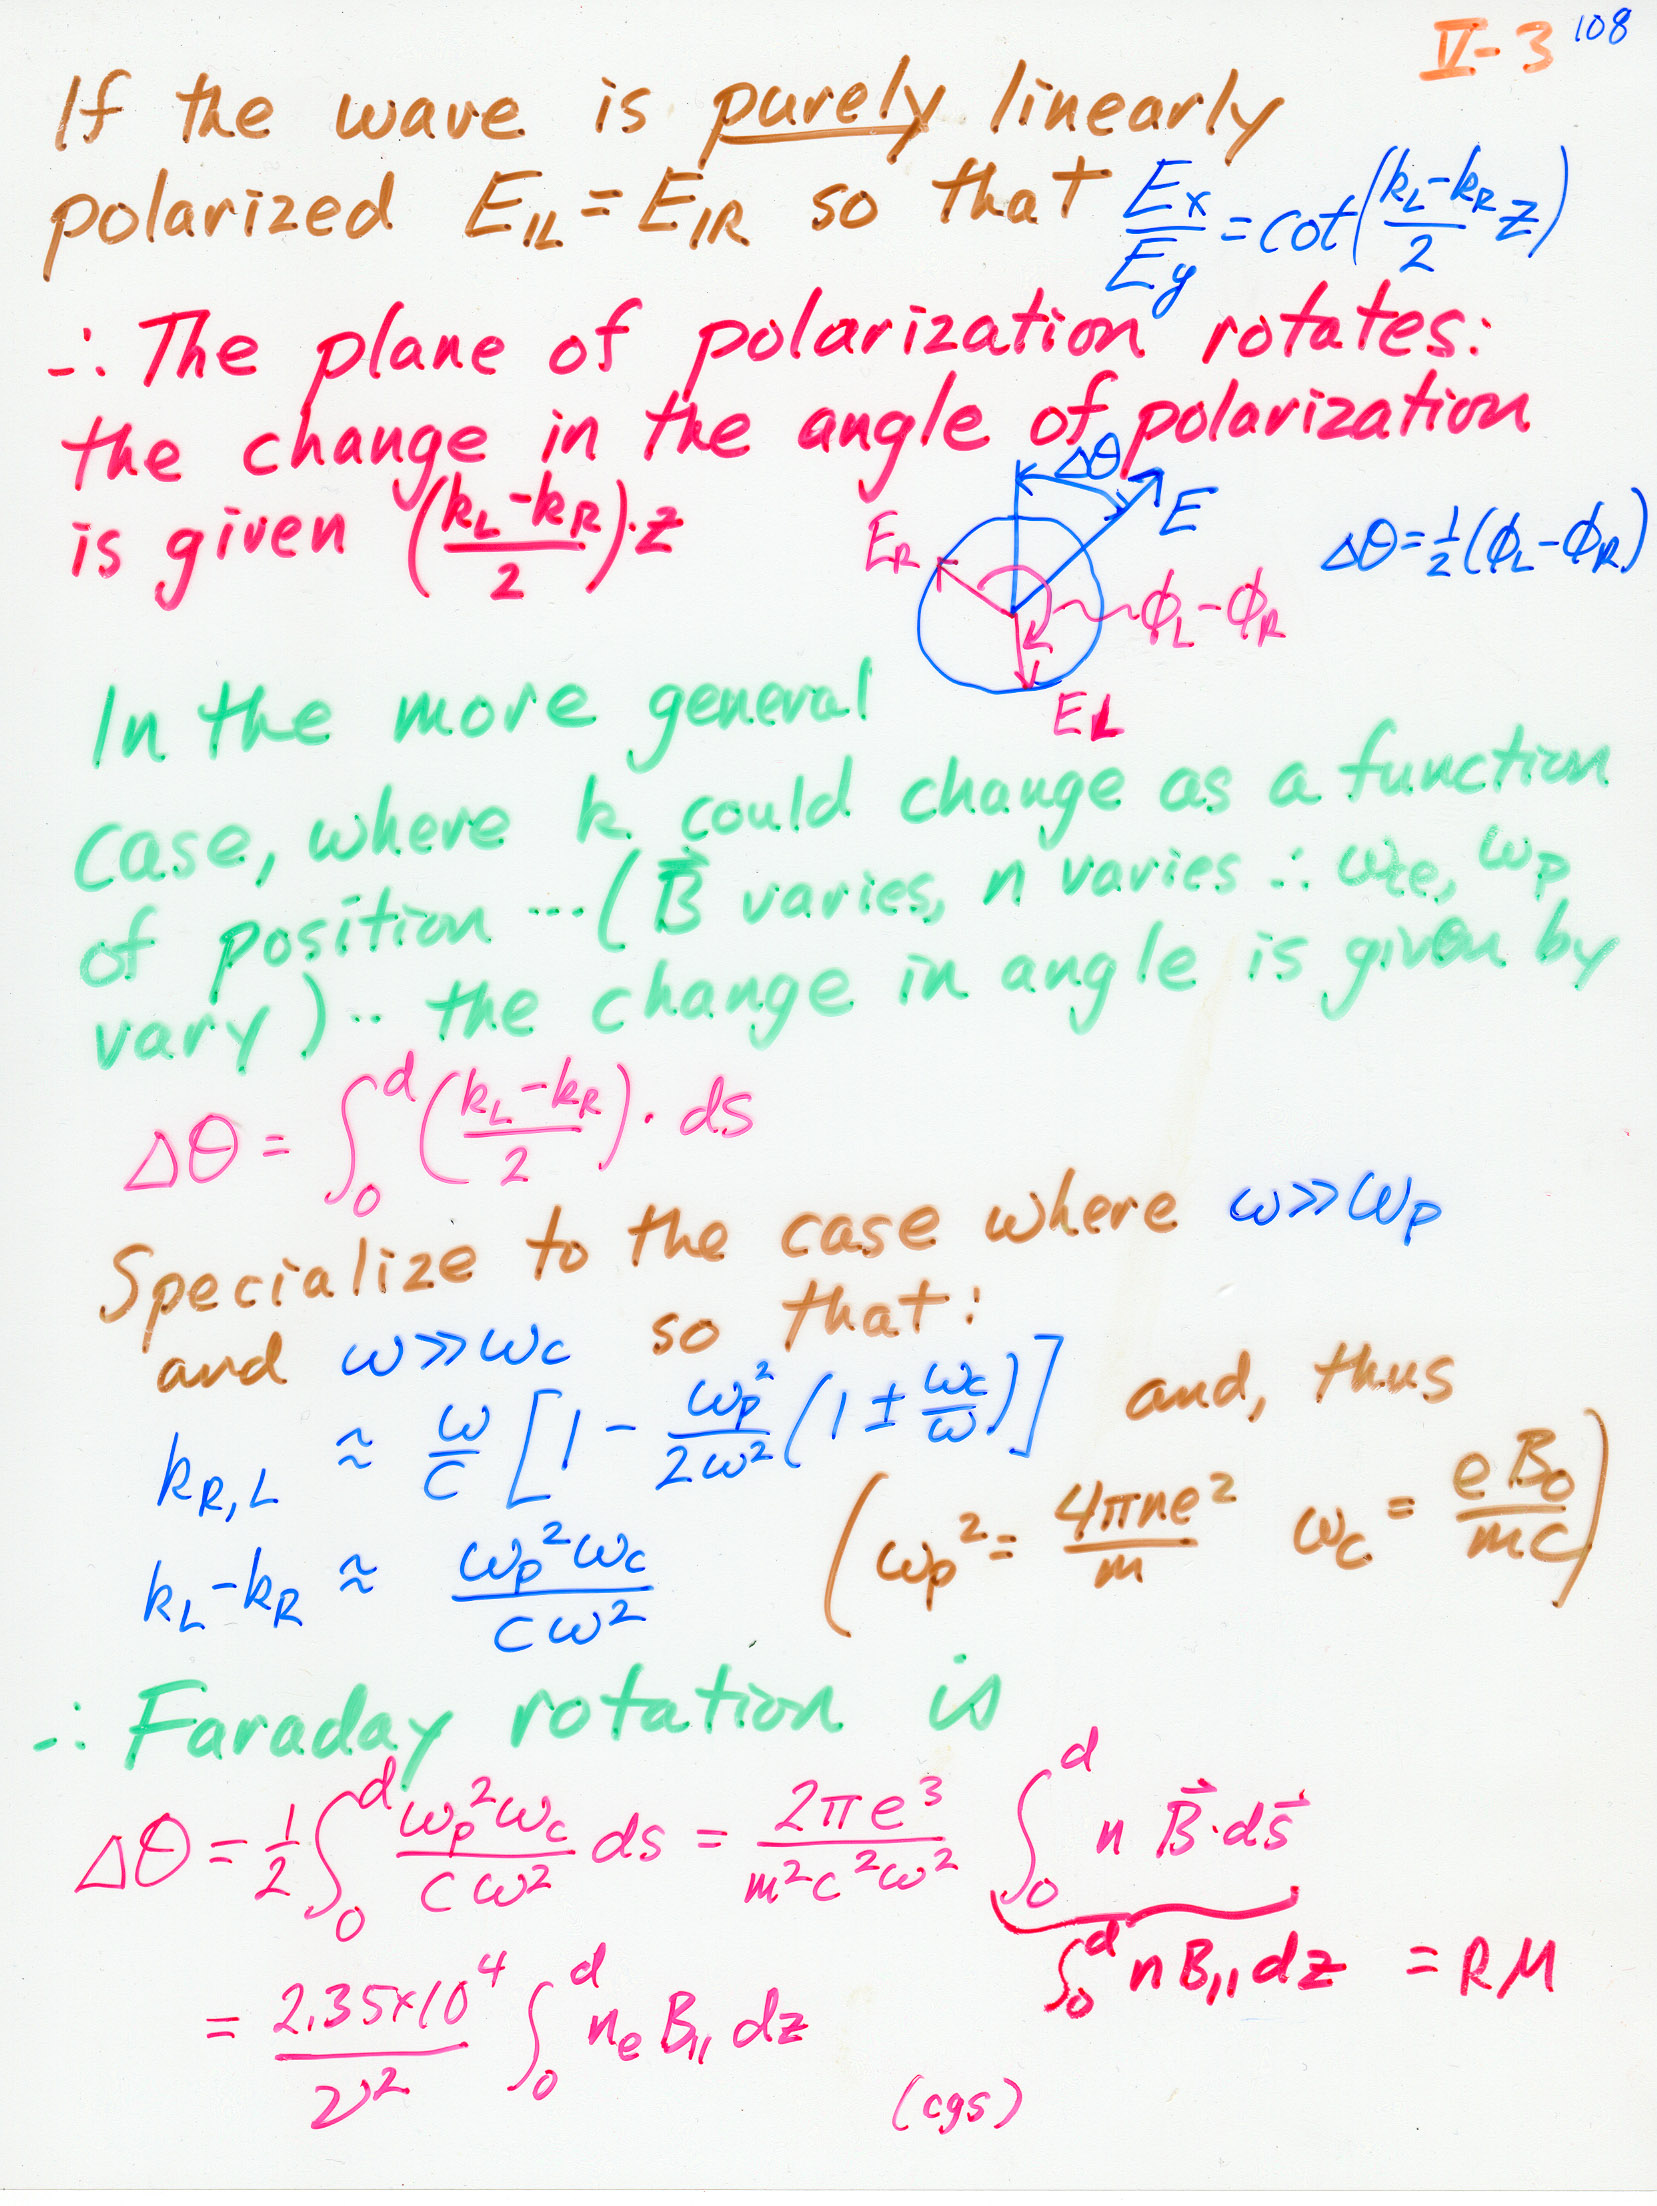 V-3 108
If the wave is purely linearly
polarized E₁L = E₁R so that Ex/Ey = cot((kL-kR)/2 z)
∴ The plane of polarization rotates:
the change in the angle of polarization
is given ((kL-kR)/2)·z
Δθ
E
ER
Δθ = ½(ϕL-ϕR)
ϕL-ϕR
EL
In the more general
case, where k could change as a function
of position ... (B⃗ varies, n varies ∴ ωce, ωp
vary) .. the change in angle is given by
Δθ = ∫₀ᵈ ((kL-kR)/2)· ds
Specialize to the case where ω>>ωp
and ω>>ωc so that:
kR,L ≈ ω/c [1 - ωp²/2ω² (1 ± ωc/ω)] and, thus
kL-kR ≈ ωp²ωc/cω² (ωp² = 4πne²/m ωc = eB₀/mc)
∴ Faraday rotation is
Δθ = ½∫₀ᵈ ωp²ωc/cω² ds = 2πe³/m²c²ω² ∫₀ᵈ n B⃗·ds⃗
∫₀ᵈ nB∥dz = RM
= 2.35×10⁴/ν² ∫₀ᵈ ne B∥ dz (cgs)